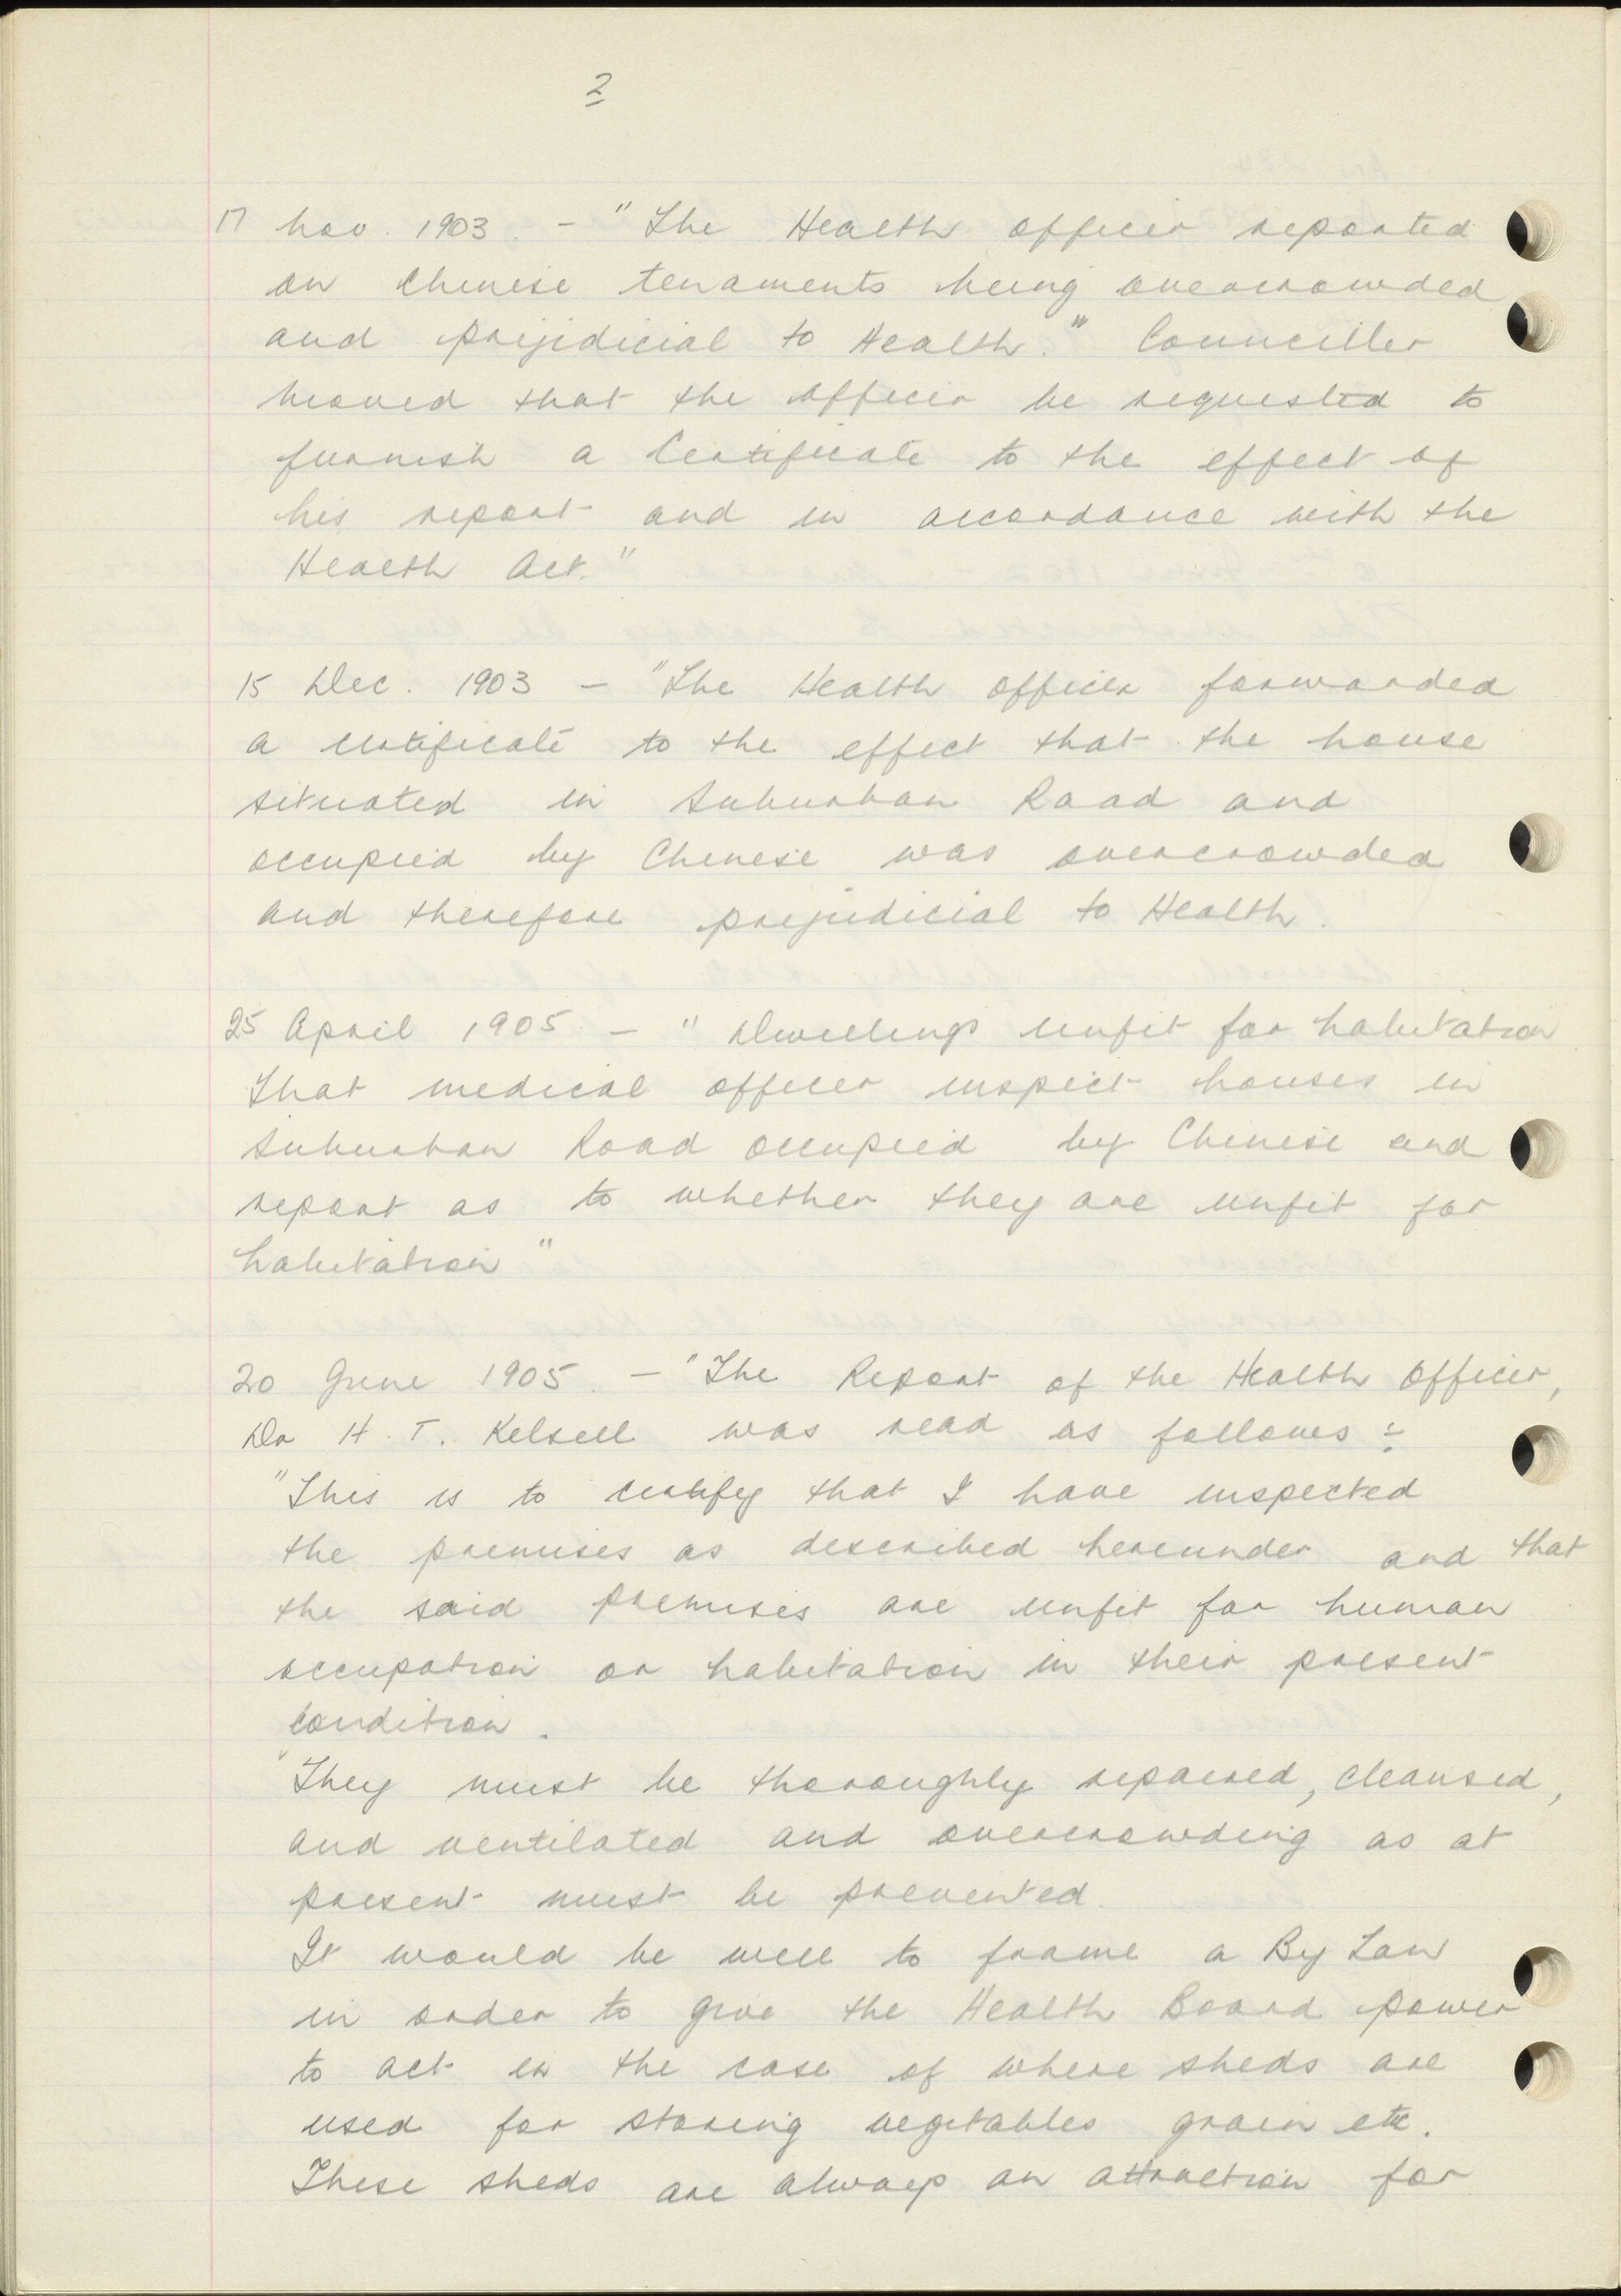 2
17 Nov. 1903. - "The Health officer reported
on Chinese tenaments being overcrowded
and prejidicial to Health." Counciller
moved that the officer be requested to
furnish a Certificate to the effect of
his report and in accordance with the
Health Act."
15 Dec. 1903 - "The Health officer forwarded
a certificate to the effect that the house
situated in Suburban Road and
occupied by Chinese was overcrowded
and therefore prejudicial to Health.
25 April 1905 - "Dwellings unfit for habitation
That medical officer inspect houses in
Suburban Road occupied by Chinese and
report as to whether they are unfit for
habitation"
20 June 1905. - "The Report of the Health Officer,
Dr H. T. Kelsell was read as follows :-
"This is to certify that I have inspected
the premises as described hereunder and that
the said premises are unfit for human
occupation or habitation in their present
condition.
"They must be thoroughly repaired, cleansed,
and ventilated and overcrowding as at
present must be prevented.
It would be well to frame a By Law
in order to give the Health Board power
to act in the case of where sheds are
used for storing vegetables grain etc.
These sheds are always an attraction for